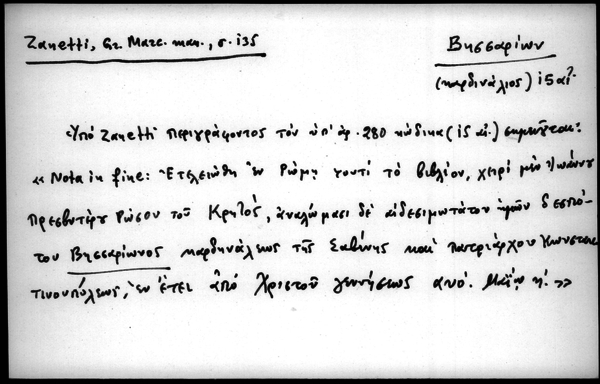 Zanetti, Gr. Marc. man., σ. 135
Βησσαρίων
(καρδινάλιος) 15 αἰ.
Ὑπό Zanetti περιγράφοντος τόν ὑπ' ἀρ. 280 κώδικα (15 αἰ.) σημειοῦται:
« Nota in fine: Ἐτελειώθη ἐν Ῥώμῃ τουτί τό βιβλίον, χειρί μέν Ἰωάννου
πρεσβυτέρου Ρώσου τοῦ Κρητός, ἀναλώμασι δέ αἰδεσιμωτάτου ἡμῶν δεσπό-
του Βησσαρίωνος καρδηνάλεως τῆς Σαβίνης καί πατριάρχου Κωνσταν
τινουπόλεως, ἐν ἔτει ἀπό Χριστοῦ γεννήσεως αυό. Μαΐῳ η'. »